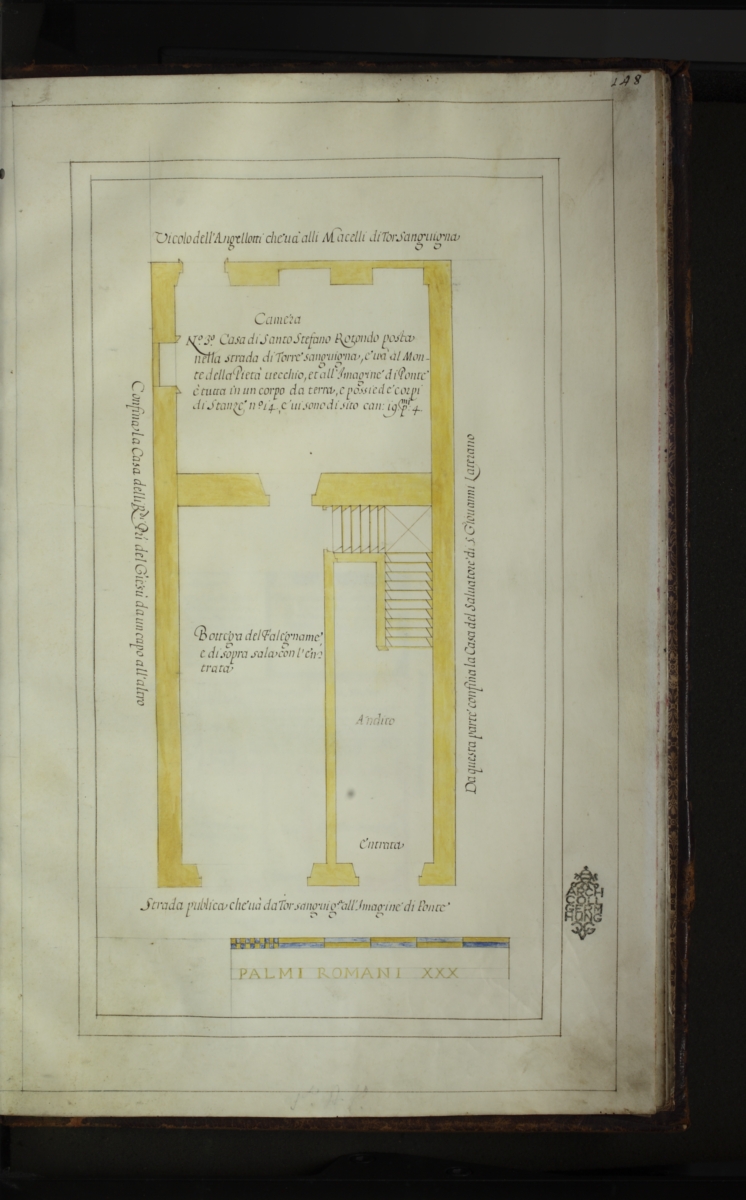 148
Vicolo dell'Angellotti che uà alli Macelli di Torsanguigna
Camera
N.º 30 Casa di Santo Stefano Rotondo posta
nella strada di Torre sanguigna, e uà al Mon-
te della Pietà uecchio, et all'Imagine di Ponte
è tutta in un corpo da terra, e possiede corpi
di Stanze nº 14, e ui sono di sito can: 19 pmi 4
Confina la Casa delli RRi PPi del Giesù da un capo all'altro
Da questa parte confina la Casa del Saluatore di S. Giouanni Laterano
Bottega del Falegname
e di sopra sala con l'en=
trata
Andito
Entrata
Strada publica che uà da Torsanguigª all'Imagine di Ponte
PALMI ROMANI XXX
ARCH
COLL
GERM
HUNG